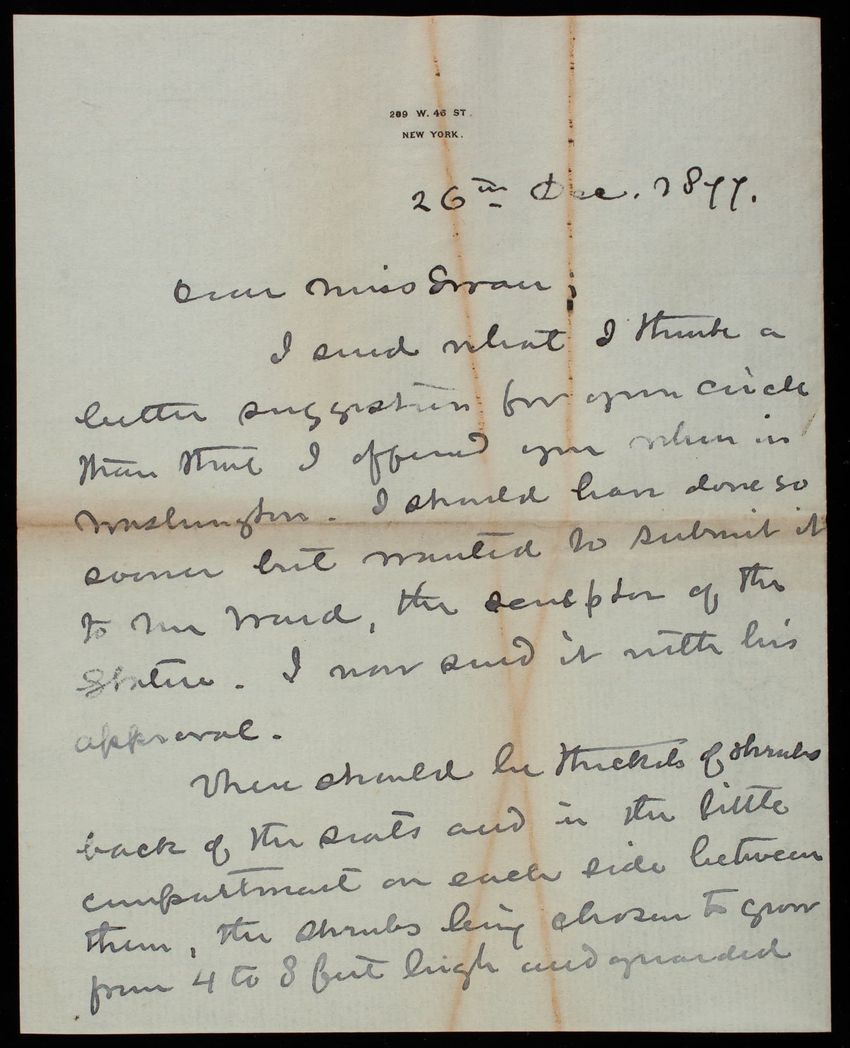 209 W. 46 ST.
NEW YORK.
26th Dec. 1877.
Dear Miss Swan;
I send what I think a
better suggestion for your circle
than that I offered you when in
Washington. I should have done so
sooner but wanted to submit it
to Mr Ward, the sculptor of the
Statue. I now send it with his
approval.
There should be thickets of shrubs
back of the seats and in the little
compartment on each side between
them, the shrubs being chosen to grow
from 4 to 8 feet high and guarded